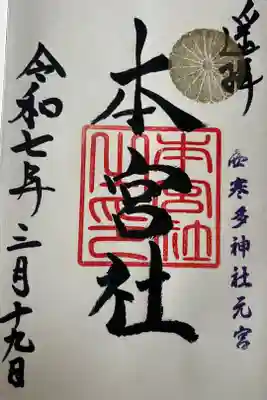 遥拝
西寒多神社元宮
本宮社
本宮社
令和七年三月十九日